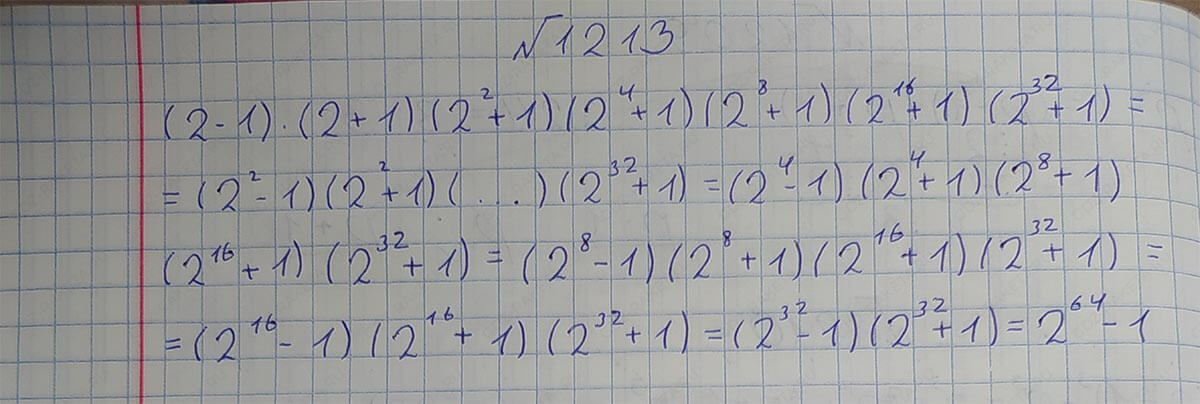 №1213
(2-1)·(2+1)(2²+1)(2⁴+1)(2⁸+1)(2¹⁶+1)(2³²+1)=
=(2²-1)(2²+1)(...)(2³²+1)=(2⁴-1)(2⁴+1)(2⁸+1)
(2¹⁶+1)(2³²+1)=(2⁸-1)(2⁸+1)(2¹⁶+1)(2³²+1)=
=(2¹⁶-1)(2¹⁶+1)(2³²+1)=(2³²-1)(2³²+1)=2⁶⁴-1